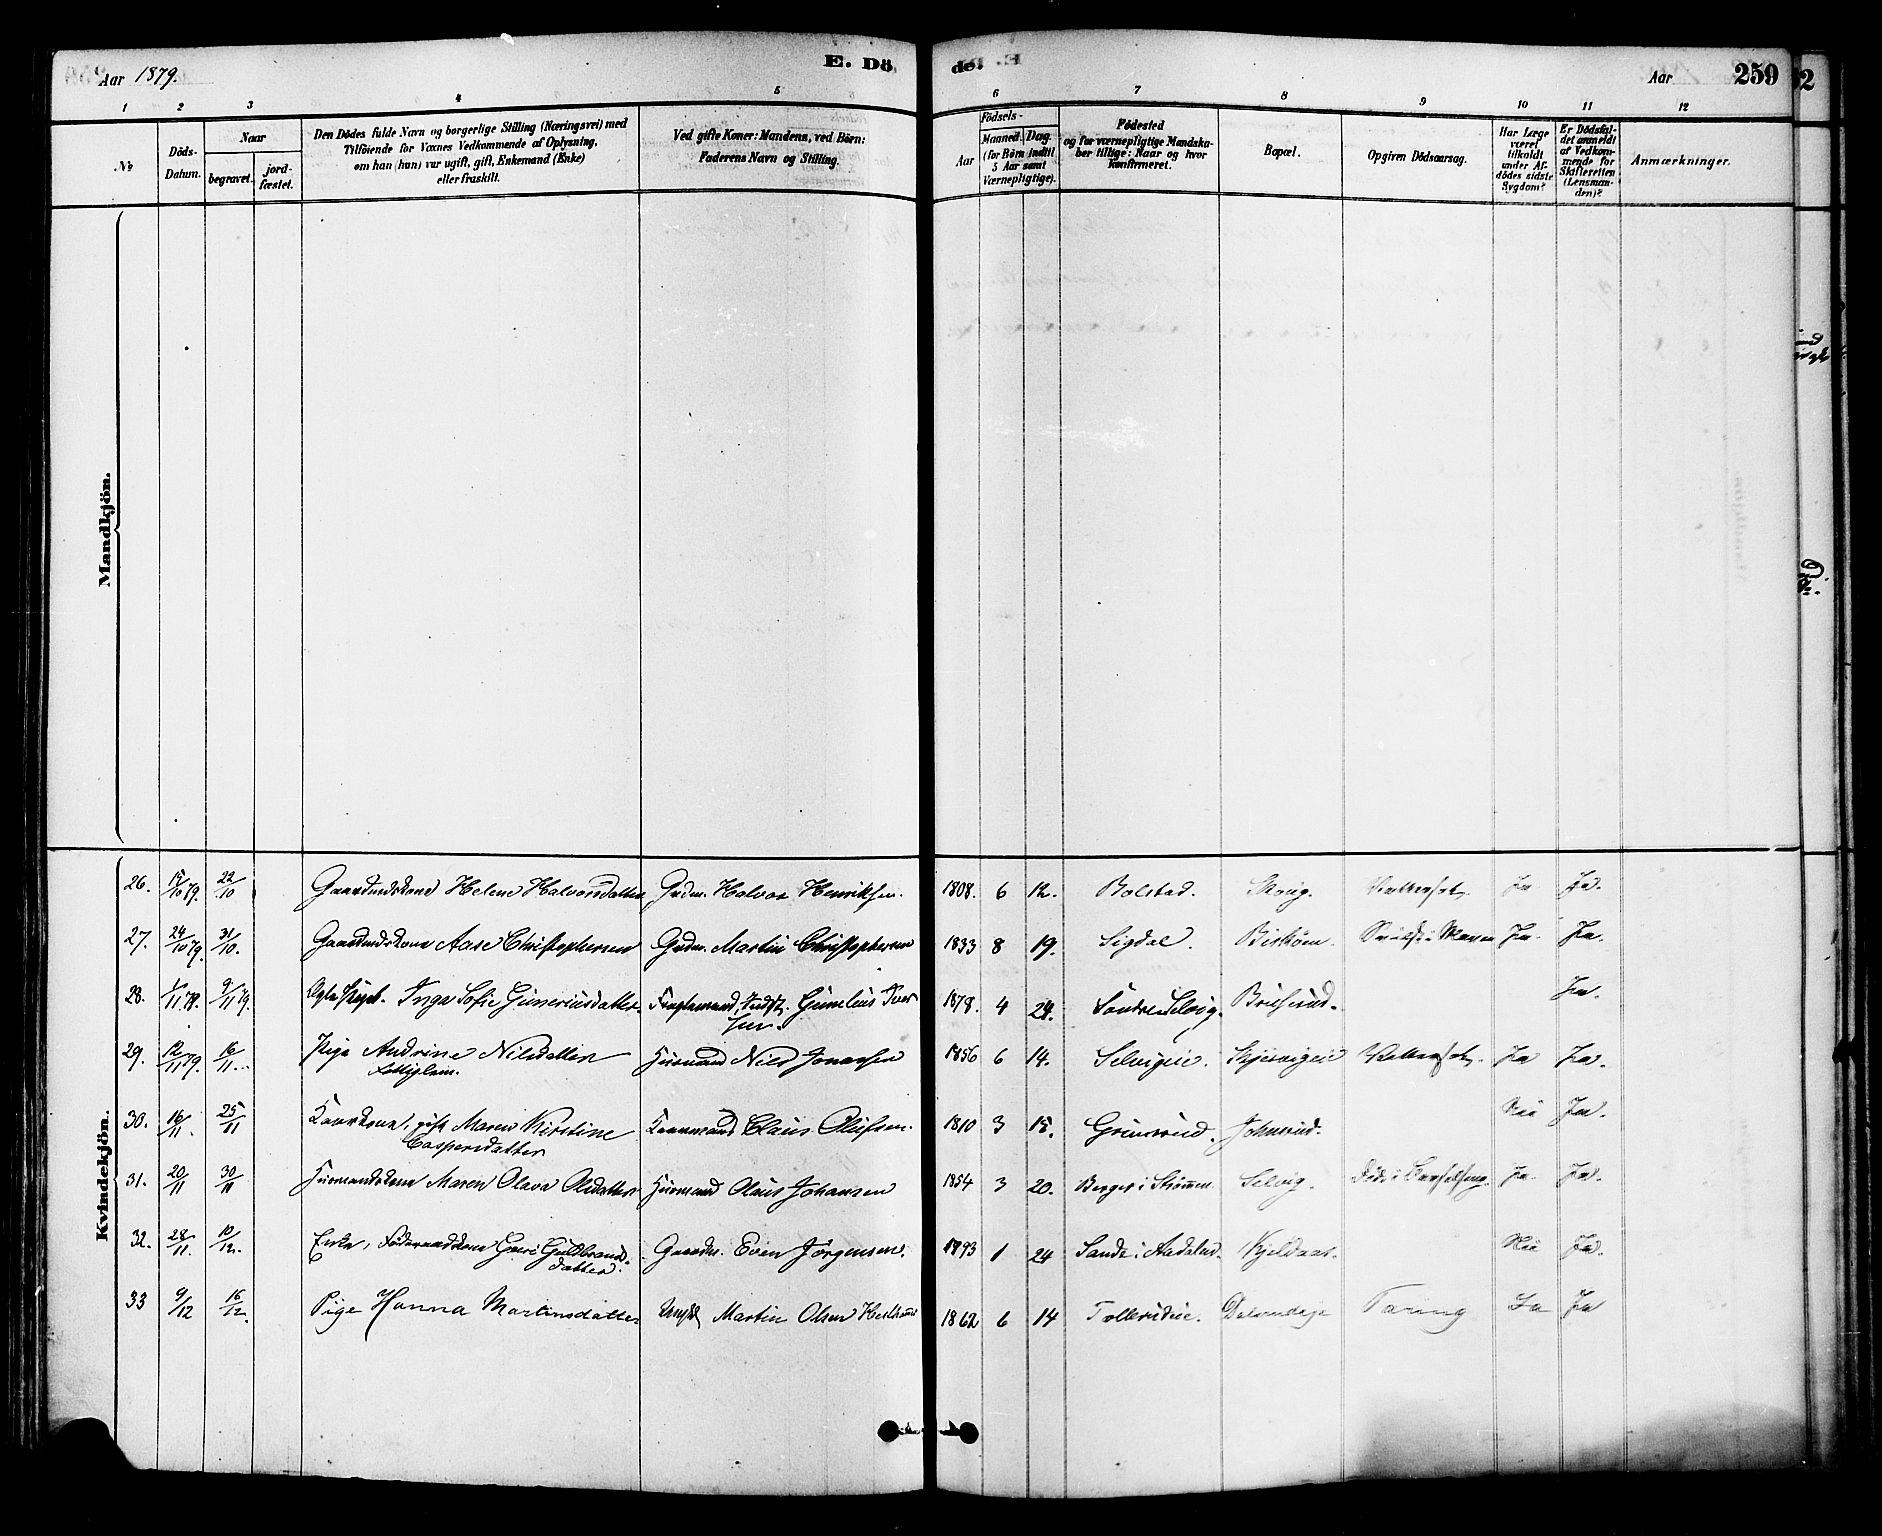 Aar 1879.
E. Dö
de.
Aar
259
1 2 3 4 5 6 7 8 9 10 11 12
No
Döds-
Datum.
Naar
begravet.
jord-
fæstet.
Den Dödes fulde Navn og borgerlige Stilling (Næringsvei) med
Tilföiende for Voxnes Vedkommende af Oplysning,
om han (hun) var ugift, gift, Enkemand (Enke)
eller fraskilt.
Ved gifte Koner: Mandens, ved Börn:
Faderens Navn og Stilling.
Födsels-
Aar
Maaned.
Dag.
(for Börn indtil
5 Aar samt
Værnepligtige).
Födested
og for værnepligtige Mandska-
ber tillige: Naar og hvor
konfirmeret.
Bopæl.
Opgiven Dödsaarsag.
Har Læge
været
tilkaldt
under Af-
dödes sidste
Sygdom?
Er Dödsfal-
det anmeldt
af Vedkom-
mende for
Skifteretten
(Lensman-
den)?
Anmærkninger.
Mandkjön.
Kvindekjön.
26. 15/10 79. 22/10 Gaardmdskone Helene Halvorsdatter Grdm. Halvor Henriksen. 1808. 6 12. Bolstad. Skrug. Vattersot. Ja Ja.
27. 24/10 79. 31/10. Gaardmdskone Aase Christophersen Grdm. Martin Christophersen 1833 8 19. Sigdal. Ja. Ja.
28. 9/11 79. Inga Sofie Guneriusdatter 1878. 4 24. Søndre Selvig. Ja.
29. 12/11 79. 16/11. Pige Andrine Nilsdatter Husmand Nils Jonassen 1856 6 14. Selvigeie. Skjervigeie Vattersot. Ja Ja.
Fattiglem.
30. 16/11. 25/11 Kaarkone, gift Maren Kirstine Kaarmand Claus Olufsen. 1810 3 15. Grimsrud. Johnsrud. Nei Ja.
Caspersdatter
31. 20/11 30/11 Husmandskone Maren Olava Olsdatter Husmand Olaus Johansen 1854 3 20. Berger i Strømm. Selvig. Døde i Barselseng. Ja. Ja.
32. 28/11. 10/12. Enke, Føderaadskone Guri Guldbrands- Gaardm. Even Jørgensen. 1793 1 24 Sande i Aadalen. Kjeldaas. Nei Ja.
datter.
33 9/12 16/12. Pige Hanna Martinsdatter Martin Olsen 1862 6 14 Tollerudeie. Tæring Ja Ja